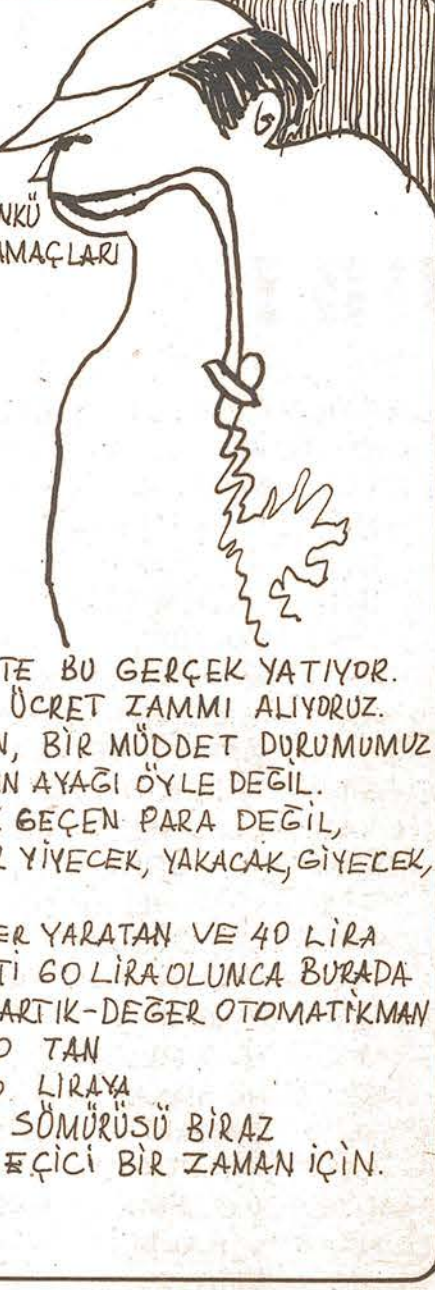 NKÜ
AMAÇLARI
TE BU GERÇEK YATIYOR.
ÜCRET ZAMMI ALIYORUZ.
N, BİR MÜDDET DURUMUMUZ
IN AYAĞI ÖYLE DEĞİL.
GEÇEN PARA DEĞİL,
YİYECEK, YAKACAK, GİYECEK,
ER YARATAN VE 40 LİRA
Tİ 60 LİRA OLUNCA BURADA
ARTIK-DEĞER OTOMATİKMAN
0 TAN
LIRAYA
SÖMÜRÜSÜ BİRAZ
EÇİCİ BİR ZAMAN İÇİN.